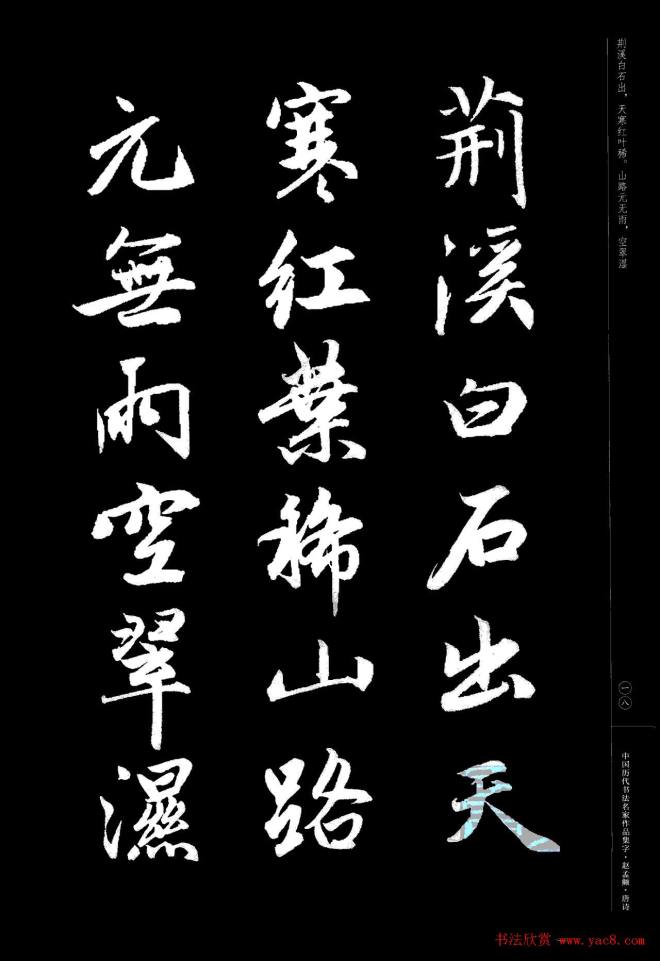 荆溪白石出天
寒红葉稀山路
元無雨空翠濕
荆溪白石出，天寒红叶稀。山路元无雨，空翠湿
一八
中国历代书法名家作品集字·赵孟頫·唐诗
书法欣赏 www.yac8.com